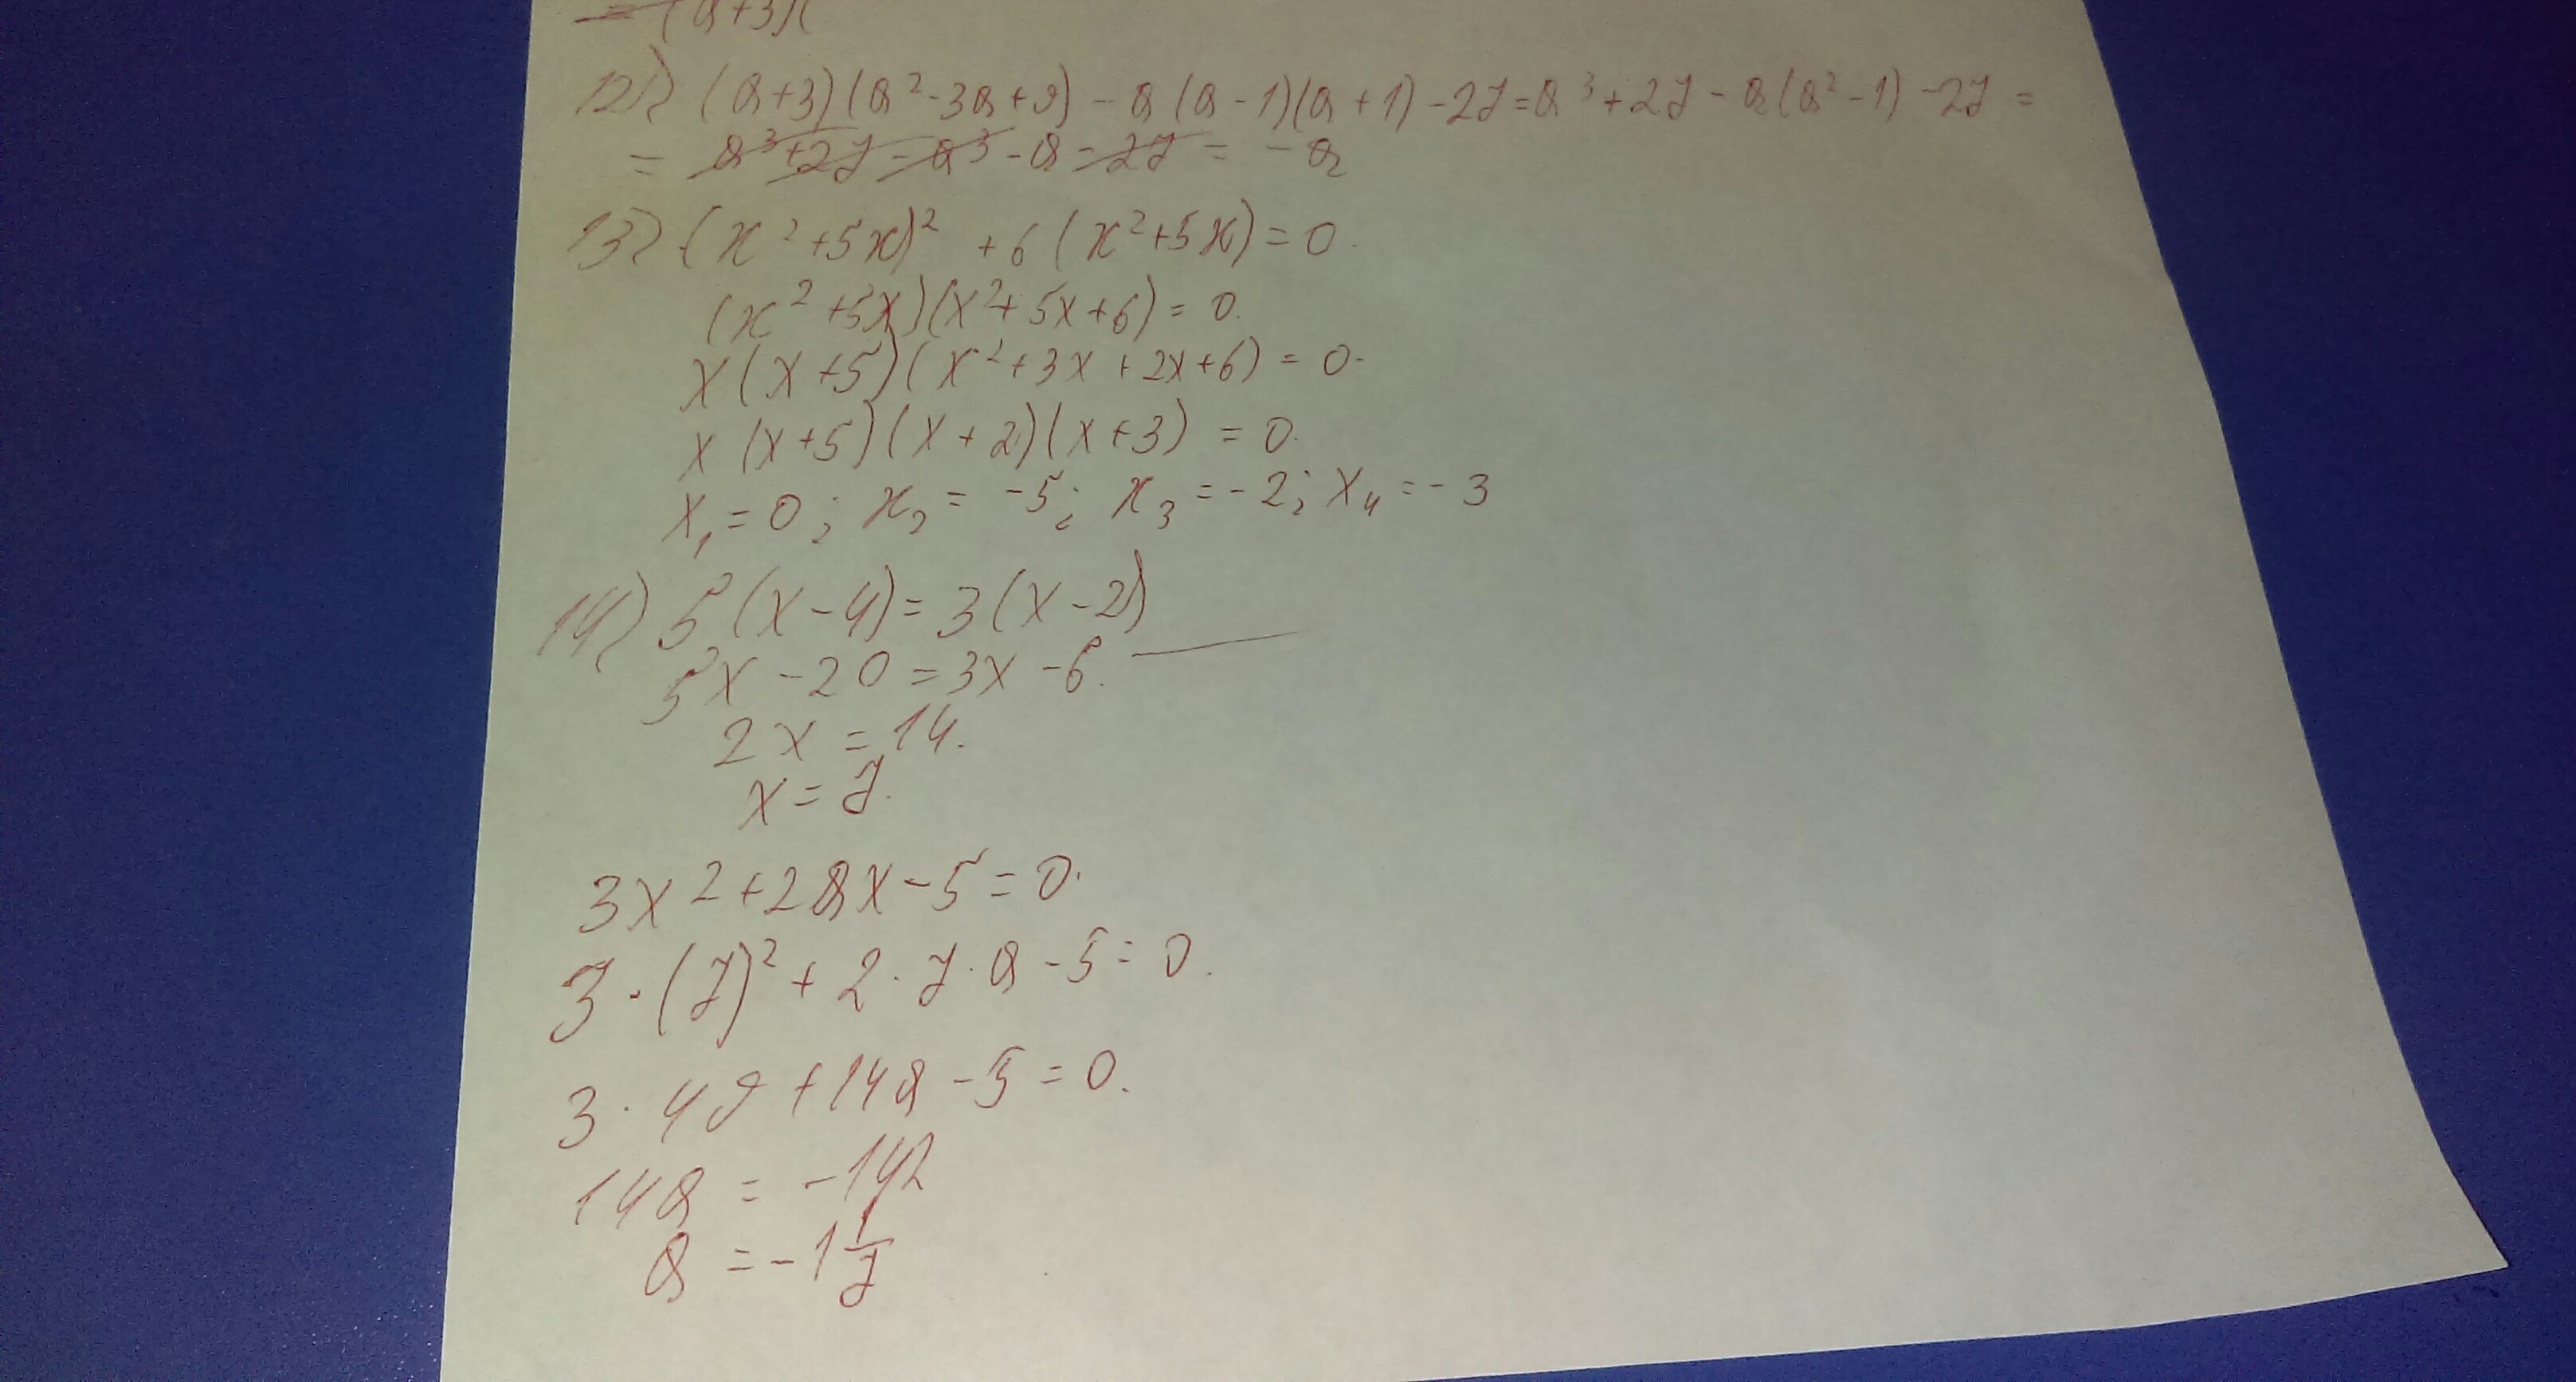 = (a+3)(
12) (a+3)(a²-3a+9) - a(a-1)(a+1) -27 = a³+27 - a(a²-1) -27 =
= a³+27-a³-a-27 = -a
13) (x²+5x)² +6(x²+5x)=0.
(x²+5x)(x²+5x+6)=0.
x(x+5)(x²+3x+2x+6)=0.
x(x+5)(x+2)(x+3)=0.
x₁=0; x₂=-5; x₃=-2; x₄=-3
14) 5(x-4)=3(x-2)
5x-20=3x-6.
2x=14.
x=7.
3x²+2ax-5=0.
3·(7)²+2·7·a-5=0.
3·49+14a-5=0.
14a=-142
a=-1 1/7